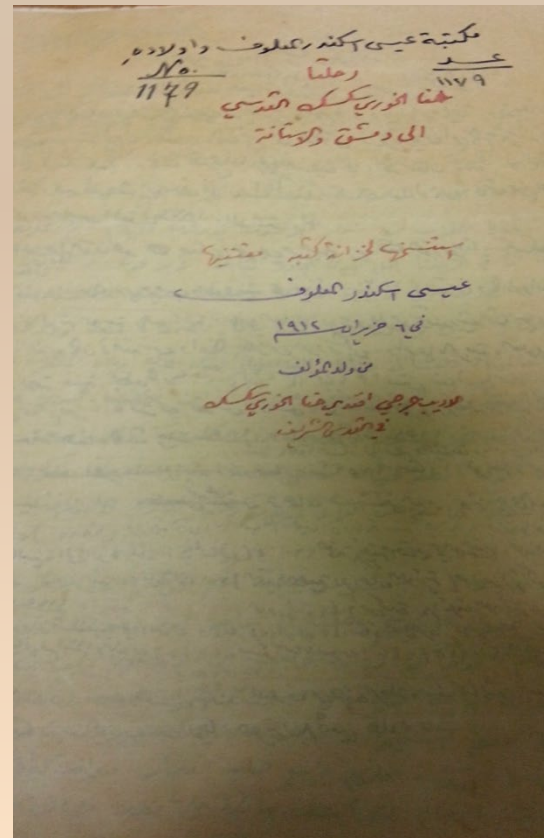 مكتبة عيسى اسكندر المعلوف واولاده
عدد
١١٧٩
No.
1179
رحلتا
حنا الخوري سكسك القدسي
الى دمشق والاستانة
استنسخها لخزانة كتبه مقتنيها
عيسى اسكندر المعلوف
في ٦ حزيران سنة ١٩١٢
من ولد المؤلف
الاديب جرجي افندي حنا الخوري سكسك
في القدس الشريف